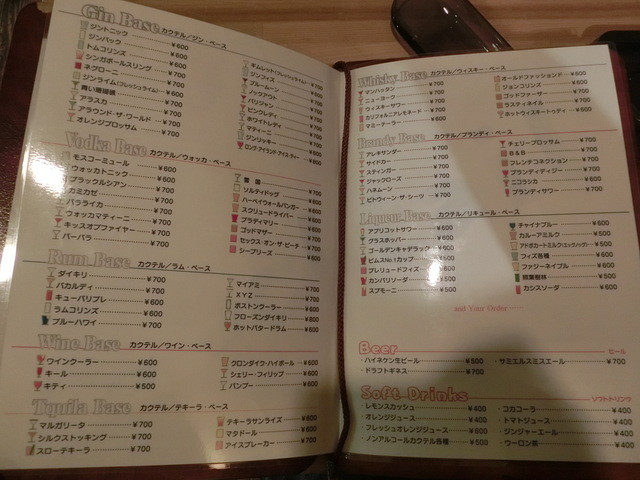 Gin Base カクテル/ジン・ベース
ジントニック ¥600
ジンバック ¥600
トムコリンズ ¥600
シンガポールスリング ¥700
ネグローニ ¥700
ジンライム(フレッシュライム) ¥600
青い珊瑚礁 ¥700
アラスカ ¥700
アラウンド・ザ・ワールド ¥700
オレンジブロッサム ¥700
ギムレット(フレッシュライム) ¥700
ジンフィズ ¥700
ブルームーン ¥700
ノックアウト ¥700
パリジャン ¥700
ピンクレディ ¥700
ホワイトレディ ¥700
マティーニ ¥700
ジンリッキー ¥700
ロング アイランド・アイス・ティー ¥800
Vodka Base カクテル/ウォッカ・ベース
モスコーミュール ¥600
ウォッカトニック ¥600
ブラックルシアン ¥700
カミカゼ ¥700
バラライカ ¥700
ウォッカマティーニ ¥700
キッスオブファイヤー ¥700
バーバラ ¥700
雪国 ¥700
ソルティドッグ ¥600
ハーベイウォールバンガー ¥600
スクリュードライバー ¥600
ブラディマリー ¥600
ゴッドマザー ¥700
セックス・オン・ザ・ビーチ ¥700
シーブリーズ ¥600
Rum Base カクテル/ラム・ベース
ダイキリ ¥700
バカルディ ¥700
キューバリブレ ¥600
ラムコリンズ ¥600
ブルーハワイ ¥700
マイアミ ¥700
XYZ ¥700
ボストンクーラー ¥600
フローズンダイキリ ¥800
ホットバタードラム ¥600
Wine Base カクテル/ワイン・ベース
ワインクーラー ¥600
キール ¥600
キティ ¥500
クロンダイク・ハイボール ¥600
シェリー・フィリップ ¥600
バンブー ¥600
Tequila Base カクテル/テキーラ・ベース
マルガリータ ¥700
シルクストッキング ¥700
スローテキーラ ¥700
テキーラサンライズ ¥600
マタドール ¥600
アイスブレーカー ¥700
Whisky Base カクテル/ウィスキー・ベース
マンハッタン ¥700
ニューヨーク ¥700
ウィスキーサワー ¥700
カリフォルニアレモネード ¥700
マミーテーラー ¥600
オールドファッションド ¥600
ジョンコリンズ ¥600
ゴッドファーザー ¥700
ラスティネイル ¥700
ホットウィスキートゥディ ¥600
Brandy Base カクテル/ブランディ・ベース
アレキサンダー ¥700
サイドカー ¥700
スティンガー ¥700
ジャックローズ ¥700
ハネムーン ¥700
ビトウィーン・ザ・シーツ ¥700
チェリーブロッサム ¥700
B&B ¥700
フレンチコネクション ¥700
ブランディデイジー ¥700
ニコラシカ ¥600
ブランディサワー ¥700
Liqueur Base カクテル/リキュール・ベース
アプリコットサワー ¥600
グラスホッパー ¥600
ゴールデンキャデラック ¥700
ピムスNo.1カップ ¥500
プレリュードフィズ ¥600
カンパリソーダ ¥500
スプモーニ ¥500
チャイナブルー ¥600
カルーアミルク ¥500
フィズ各種 ¥600
ファジーネイブル ¥500
照葉樹林 ¥500
カシスソーダ ¥600
and Your Order・・・・
Beer ビール
・ハイネケン生ビール ¥600
・ドラフトギネス ¥700
・サミエルスミスエール ¥700
Soft Drinks ソフトドリンク
・レモンスカッシュ ¥400
・オレンジジュース ¥400
・フレッシュオレンジジュース ¥600
・ノンアルコールカクテル各種 ¥500
・コカコーラ ¥400
・トマトジュース ¥400
・ジンジャーエール ¥400
・ウーロン茶 ¥400